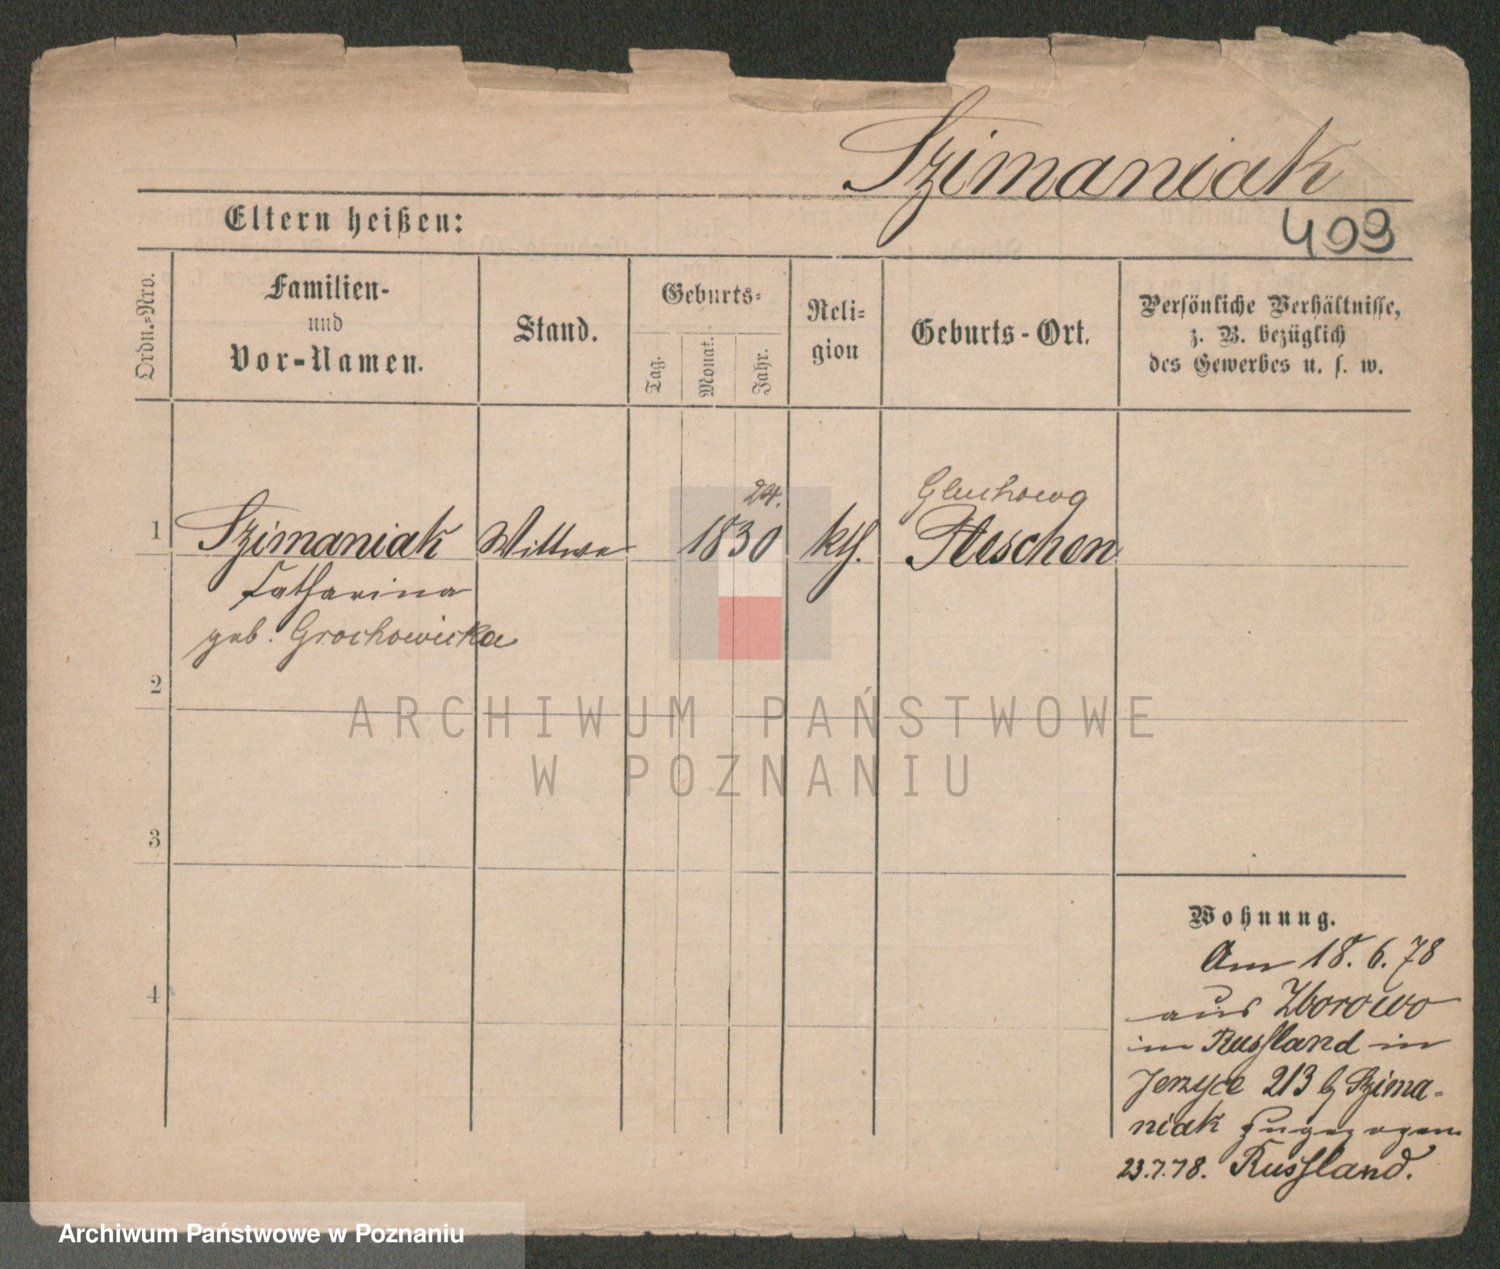 Szimaniak
409
Eltern heißen:
Ordn.-Nro.
Familien-
und
Vor-Namen.
Stand.
Geburts-
Tag.
Monat.
Jahr.
Reli-
gion
Geburts-Ort.
Persönliche Verhältnisse,
z. B. bezüglich
des Gewerbes u. s. w.
24.
Gluchowo
1 Szimaniak Wittwe 1830 kth. Pleschen
Catharina
geb. Grochowicka
2
ARCHIWUM PAŃSTWOWE
W POZNANIU
3
Wohnung.
Am 18.6.78
4
aus Zborowo
in Russland in
Jerzyce 213 b Szima-
niak zugezogen
23.7.78. Russland.
Archiwum Państwowe w Poznaniu